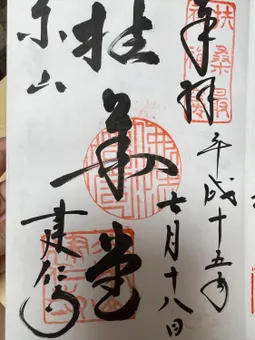 扶桑最
奉拝
平成十五年
七月十八日
拈華堂
東山
建仁寺